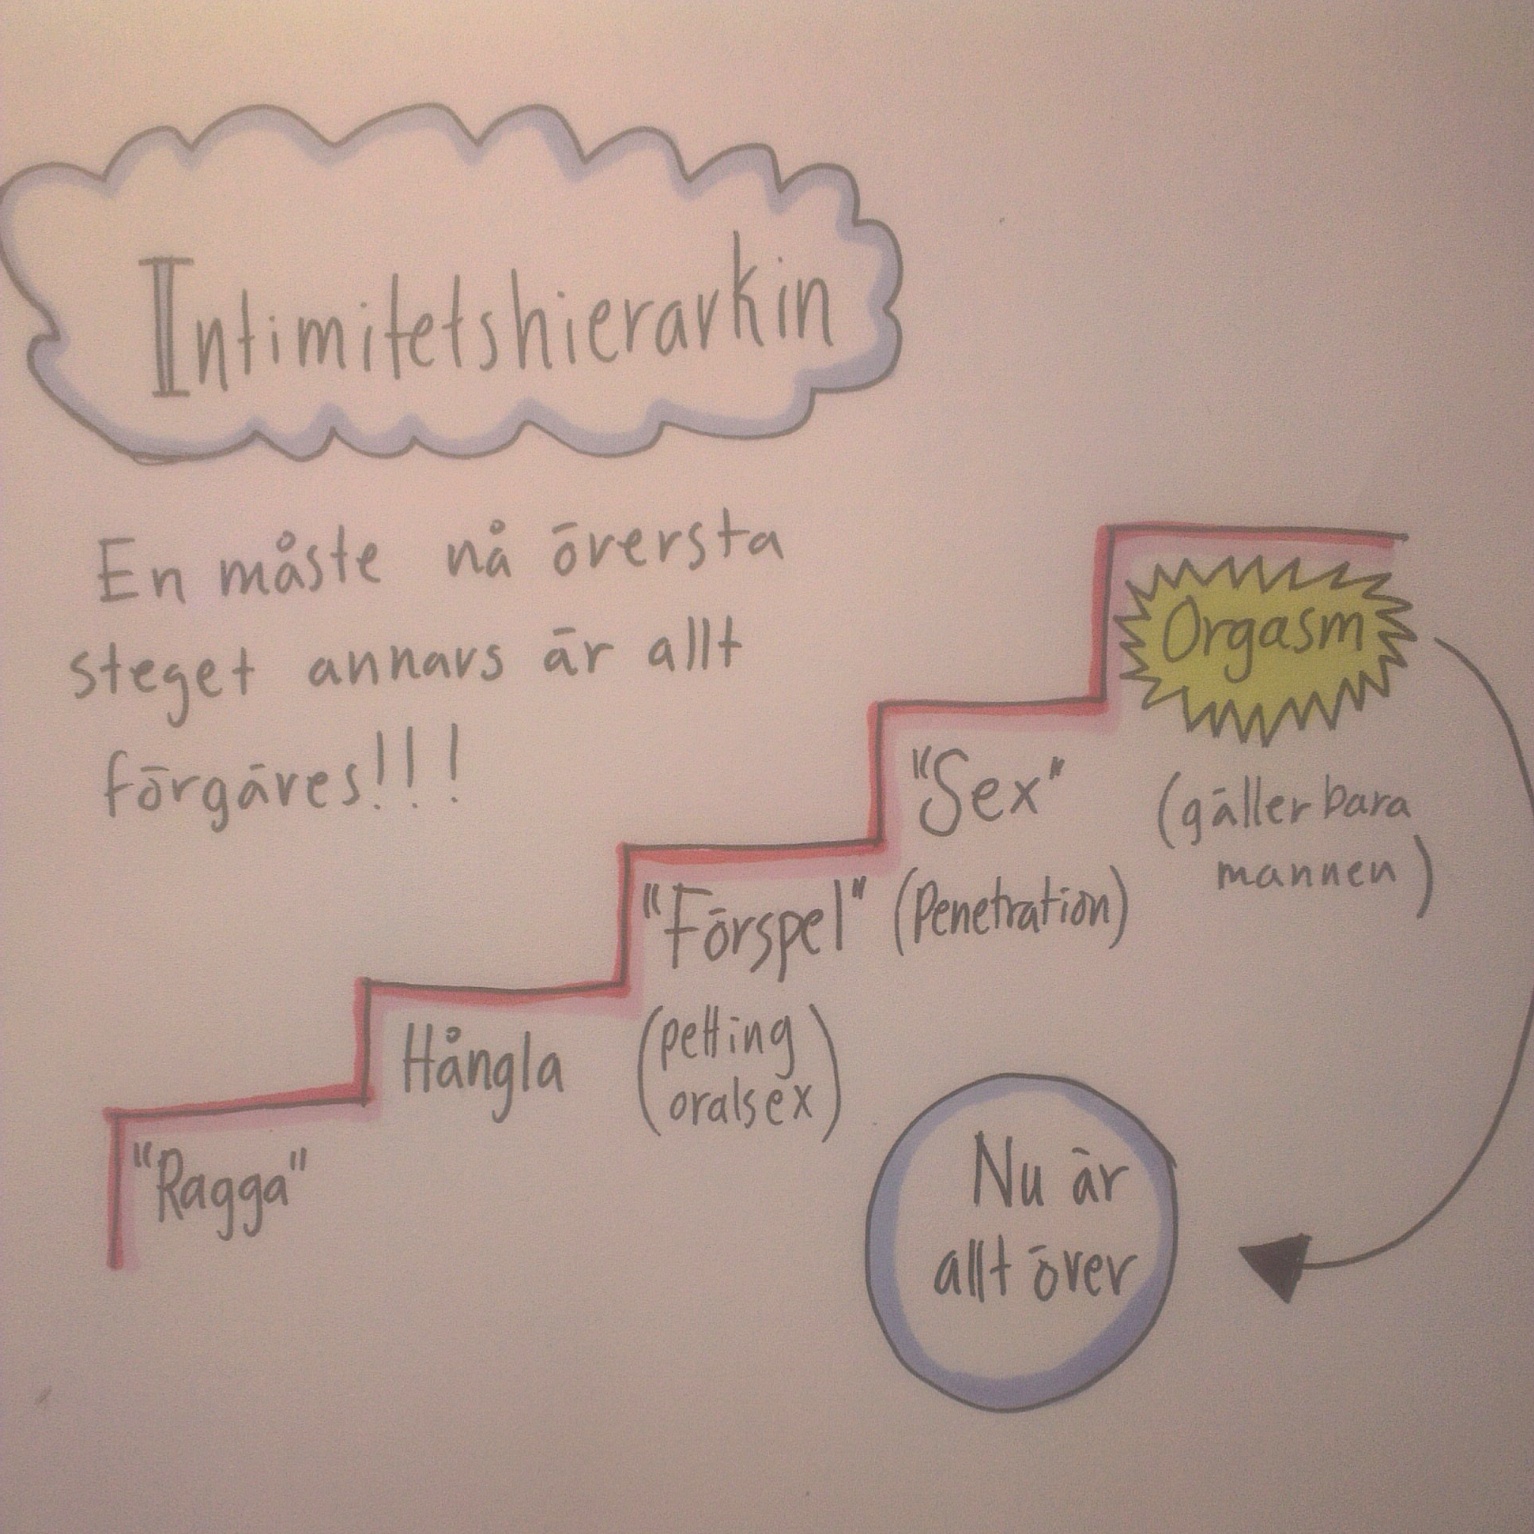 Intimitetshierarkin
En måste nå översta
steget annars är allt
förgäves!!!
"Ragga"
Hångla
"Förspel"
(petting
oralsex)
"Sex"
(Penetration)
Orgasm
(gäller bara
mannen)
Nu är
allt över